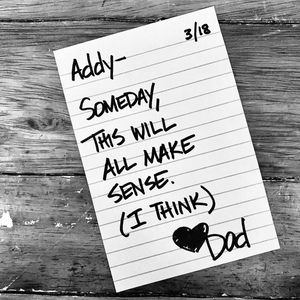 3/18
Addy-
SOMEDAY,
THIS WILL
ALL MAKE
SENSE.
(I THINK)
Dad